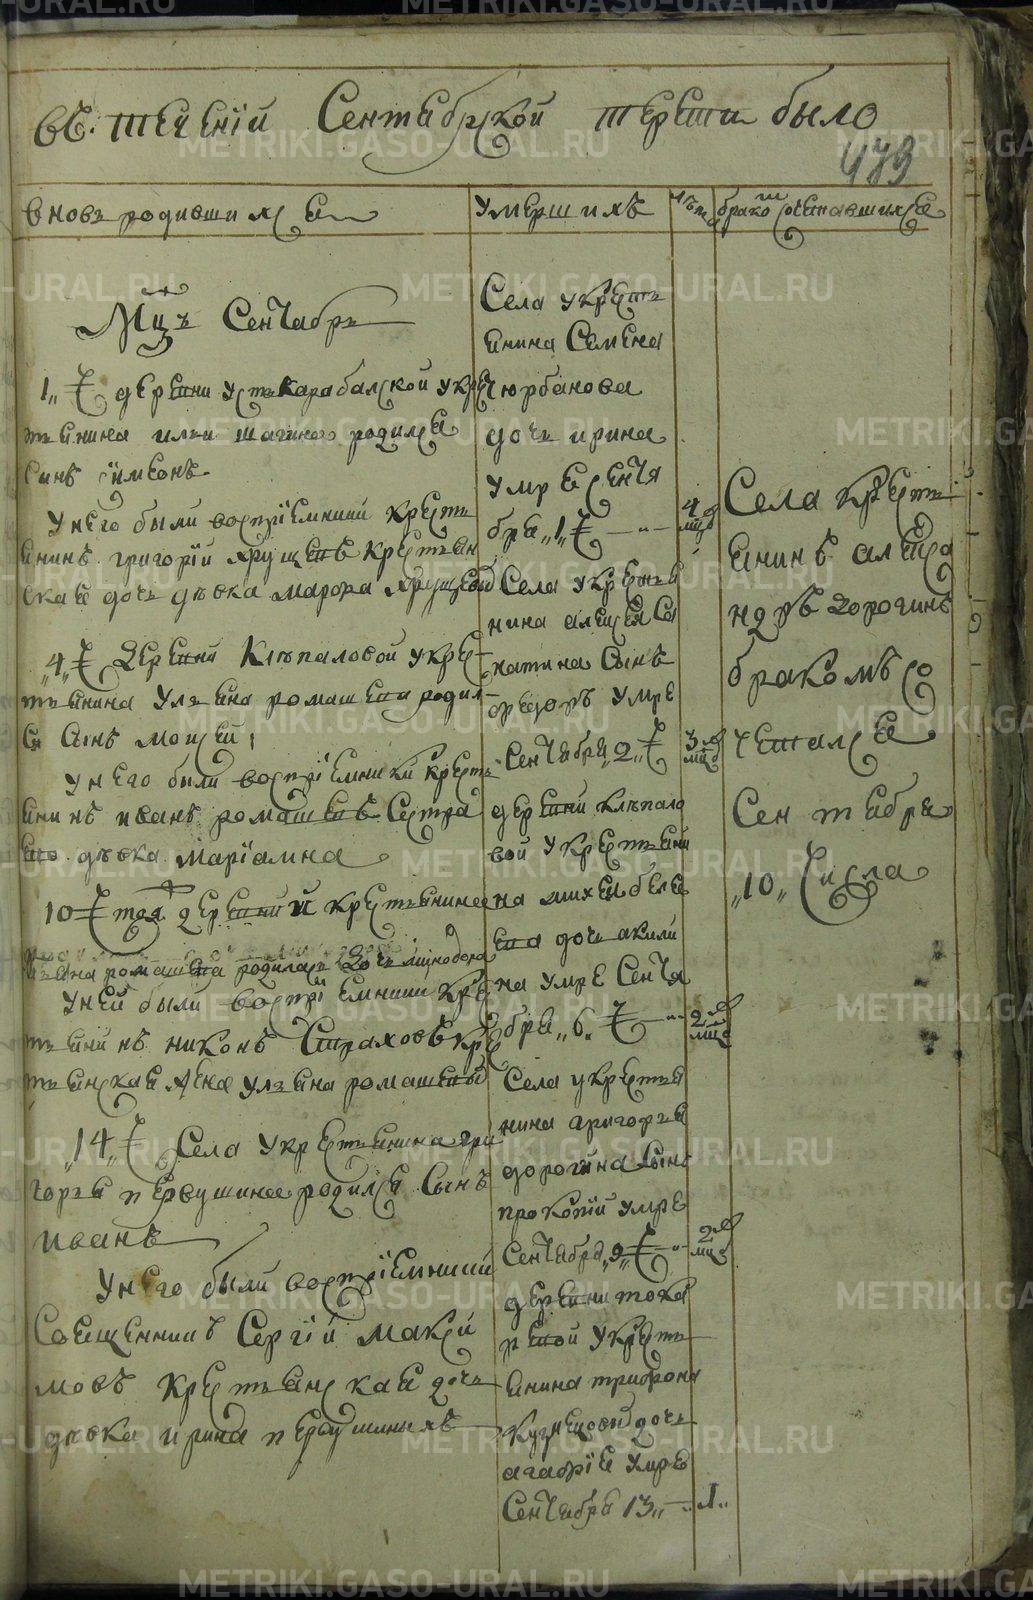 въ течениi Сентябрской трети было
479
вновь родившихся
умершихъ
лета
бракосочетавшихся
Мцъ Сентябрь
1 ч деревни Усть Карабалской у кре
стьянина ильи шагина родился
сынъ сѵмеонъ
у него были восприемники кресть
янинъ григорiй хрущевъ крестьян
ская дочь девка марфа хрущева
4 ч деревни Клепаловой у кре
стьянина ульяна ромашева родил
ся сынъ моисей
у него были восприемники кресть
янинъ иванъ ромашевъ сестра
ево девка марiамна
10 ч тоя деревни
ромашева родилась дочь минодора
у ней были восприемники кре
стьянинъ никонъ Страховъ кре
стьянская жена ульяна ромашева
14 ч Села у крестьянина гри
горья первушина родился сынъ
иванъ
у него были восприемники
Священникъ Сергiй макси
мовъ крестьянская дочь
девка ирина первушиныхъ
Села у кресть
янина Семена
чюрбанова
дочь ирина
умре сентя
бря 1 ч
4 мцъ
Села у кресть
нина алексея са
натина сынъ
феодоръ умре
Сентября 2 ч
3 мцъ
деревни клепало
вой у крестьяни
на михея беле
ева дочь акили
на умре Сентя
бря 6 ч
2 мцъ
Села у крестья
нина григорья
дорогина сынъ
прокопiй умре
Сентября 9 ч
2 мцъ
деревни тока
ревой у кресть
янина трифона
кузнецова дочь
агафiя умре
Сентября 13
1
Села кресть
янинъ алекса
ндръ дорогинъ
бракомъ со
четался
Сентября
10 Числа
METRIKI.GASO-URAL.RU